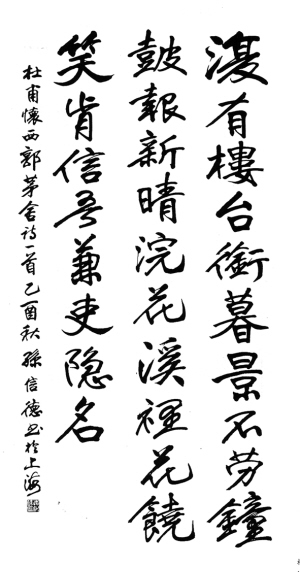 復有樓台銜暮景不勞鐘
鼓報新晴浣花溪裡花饒
笑肯信吾兼吏隐名
杜甫懷西郭茅舍诗一首乙酉秋孫信德书於上海